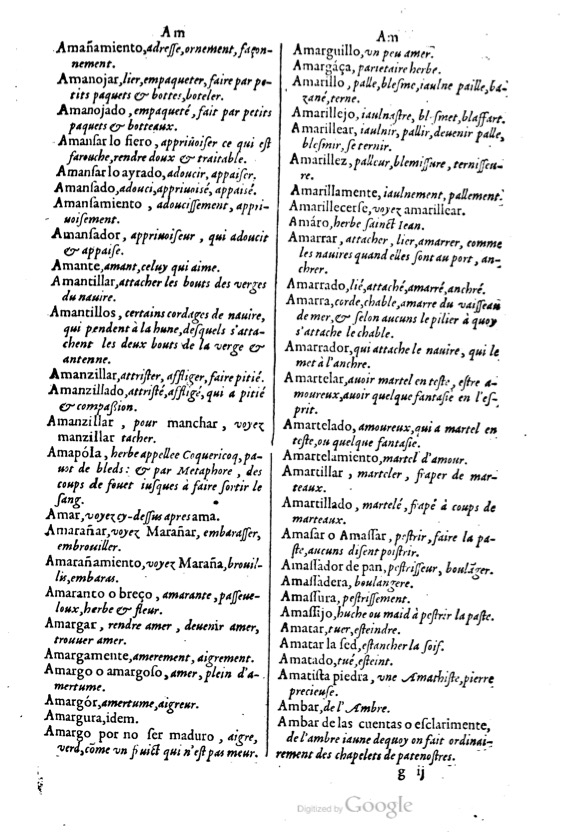 Am
Amañamiento, adresse, ornement, façon-
nement.
Amanojar, lier, empaqueter, faire par pe-
tits paquets & bottes, boteler.
Amanojado, empaqueté, fait par petits
paquets & botteaux.
Amanſar lo fiero, appriuoiſer ce qui eſt
farouche, rendre doux & traitable.
Amanſar lo ayrado, adoucir, appaiſer.
Amanſado, adouci, appriuoisé, appaisé.
Amanſamiento, adouciſſement, appri-
uoiſement.
Amanſador, appriuoiſeur, qui adoucit
& appaiſe.
Amante, amant, celuy qui aime.
Amantillar, attacher les bouts des verges
du nauire.
Amantillos, certains cordages de nauire,
qui pendent à la hune, deſquels s'atta-
chent les deux bouts de la verge &
antenne.
Amanzillar, attriſter, affliger, faire pitié.
Amanzillado, attriſté, affligé, qui a pitié
& compaßion.
Amanzillar, pour manchar, voyez
manzillar tacher.
Amapóla, herbe appellee Coquericoq, pa-
uot de bleds: & par Metaphore, des
coups de fouet iuſques à faire ſortir le
ſang.
Amar, voyez cy-deſſus apres ama.
Amarañar, voyez Marañar, embaraſſer,
embrouiller.
Amarañamiento, voyez Maraña, brouil-
lis, embaras.
Amaranto o breço, amarante, paſſeue-
loux, herbe & fleur.
Amargar, rendre amer, deuenir amer,
trouuer amer.
Amargamente, amerement, aigrement.
Amargo o amargoſo, amer, plein d'a-
mertume.
Amargór, amertume, aigreur.
Amargura, idem.
Amargo por no ſer maduro, aigre,
verd, cõme vn fruict qui n'eſt pas meur.
Am
Amarguillo, vn peu amer.
Amargáça, parietaire herbe.
Amarillo, palle, bleſme, iaulne paille, ba-
zané, terne.
Amarillejo, iaulnaſtre, bleſmet, blaffart.
Amarillear, iaulnir, pallir, deuenir palle,
bleſmir, ſe ternir.
Amarillez, palleur, blemiſſure, terniſſeu-
re.
Amarillamente, iaulnement, pallement.
Amarillecerſe, voyez amarillear.
Amáro, herbe ſainct Iean.
Amarrar, attacher, lier, amarrer, comme
les nauires quand elles ſont au port, an-
chrer.
Amarrado, lié, attaché, amarré, anchré.
Amarra, corde, chable, amarre du vaiſſeau
de mer, & ſelon aucuns le pilier à quoy
s'attache le chable.
Amarrador, qui attache le nauire, qui le
met à l'anchre.
Amartelar, auoir martel en teſte, eſtre a-
moureux, auoir quelque fantaſie en l'eſ-
prit.
Amartelado, amoureux, qui a martel en
teſte, ou quelque fantaſie.
Amartelamiento, martel d'amour.
Amartillar, marteler, fraper de mar-
teaux.
Amartillado, martelé, frapé à coups de
marteaux.
Amaſar o Amaſſar, peſtrir, faire la pa-
ſte, aucuns diſent poiſtrir.
Amaſſador de pan, peſtriſſeur, boulãger.
Amaſſadera, boulangere.
Amaſſura, peſtriſſement.
Amaſſijo, huche ou maid à peſtrir la paſte.
Amatar, tuer, eſteindre.
Amatar la ſed, eſtancher la ſoif.
Amatado, tué, eſteint.
Amatiſta piedra, vne Amathiſte, pierre
precieuſe.
Ambar, de l'Ambre.
Ambar de las cuentas o eſclarimente,
de l'ambre iaune dequoy on fait ordinai-
rement des chapelets de patenoſtres.
g ij
Digitized by Google